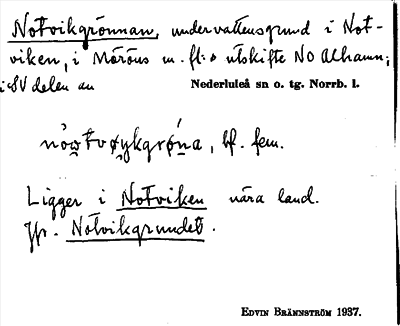 Notvikgrönnan, undervattensgrund i Not-
viken, i Måröns m. fl:s utskifte NO Alhamn,
i SV delen av Nederluleå sn o. tg. Norrb. l.
nò̱tvøykgrǿna, bf. fem.
Ligger i Notviken nära land.
Jfr. Notvikgrundet.
Edvin Brännström 1937.